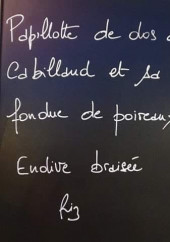 Papillotte de dos
Cabillaud et sa
fondue de poireaux
Endive braisée
Riz